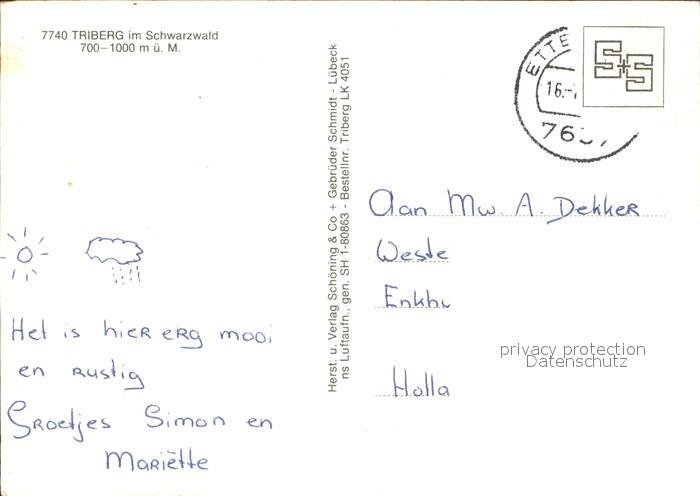 7740 TRIBERG im Schwarzwald
700–1000 m ü. M.
Het is hier erg mooi
en rustig
Groetjes Simon en
Mariëtte
Herst. u. Verlag Schöning & Co + Gebrüder Schmidt - Lübeck
ns Luftaufn., gen. SH 1-80863 - Bestellnr. Triberg LK 4051
ETTE
16.-
S+S
Aan Mw. A. Dekker
Weste
Enkhu
Holla
privacy protection
Datenschutz